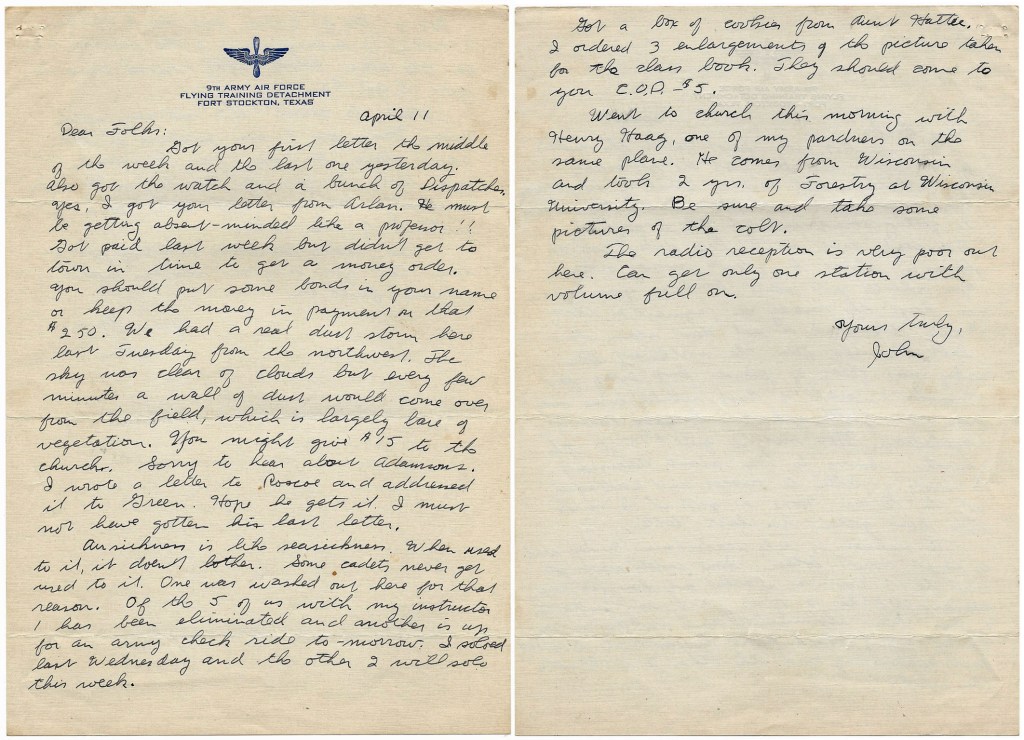 9TH ARMY AIR FORCE
FLYING TRAINING DETACHMENT
FORT STOCKTON, TEXAS
April 11
Dear Folks:
Got your first letter the middle
of the week and the last one yesterday.
Also got the watch and a bunch of Dispatches
Yes, I got your letter from Arlan. He must
be getting absent-minded like a professor!!
Got paid last week but didn't get to
town in time to get a money order.
You should put some bonds in your name
or keep the money in payment on that
$250. We had a real dust storm here
last Tuesday from the northwest. The
sky was clear of clouds but every few
minutes a wall of dust would come over
from the field, which is largely bare of
vegetation. You might give $15 to the
church. Sorry to hear about Adamsons.
I wrote a letter to Roscoe and addressed
it to Green. Hope he gets it. I must
not have gotten his last letter.
Airsickness is like seasickness. When used
to it, it doesn't bother. Some cadets never get
used to it. One was washed out here for that
reason. Of the 5 of us with my instructor
1 has been eliminated and another is up
for an army check ride to-morrow. I soloed
last Wednesday and the other 2 will solo
this week.
Got a box of cookies from Aunt Hattie.
I ordered 3 enlargements of the picture taken
for the class book. They should come to
you C.O.D. $5.
Went to church this morning with
Henry Haag, one of my pardners on the
same plane. He comes from Wisconsin
and took 2 yrs. of Forestry at Wisconsin
University. Be sure and take some
pictures of the colt.
The radio reception is very poor out
here. Can get only one station with
volume full on.
Yours truly,
John